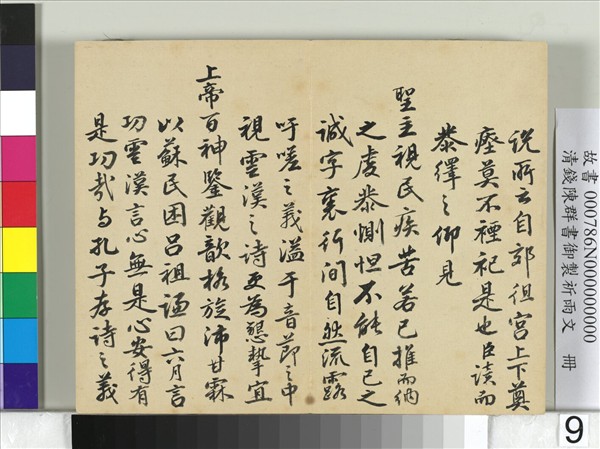 説所云自郊徂宮上下奠
瘞莫不禋祀是也臣讀而
恭繹之仰見
聖主視民疾苦若己推而納
之虔恭惻怛不能自已之
誠字裏行間自然流露
吁嗟之義溢于音節之中
視雲漢之詩更為懇摯宜
上帝百神鑒觀歆格旋沛甘霖
以蘇民困呂祖謙曰六月言
功雲漢言心無是心安得有
是功哉与孔子存詩之義
故書 000786N000000000
清錢陳群書御製祈雨文 冊
9